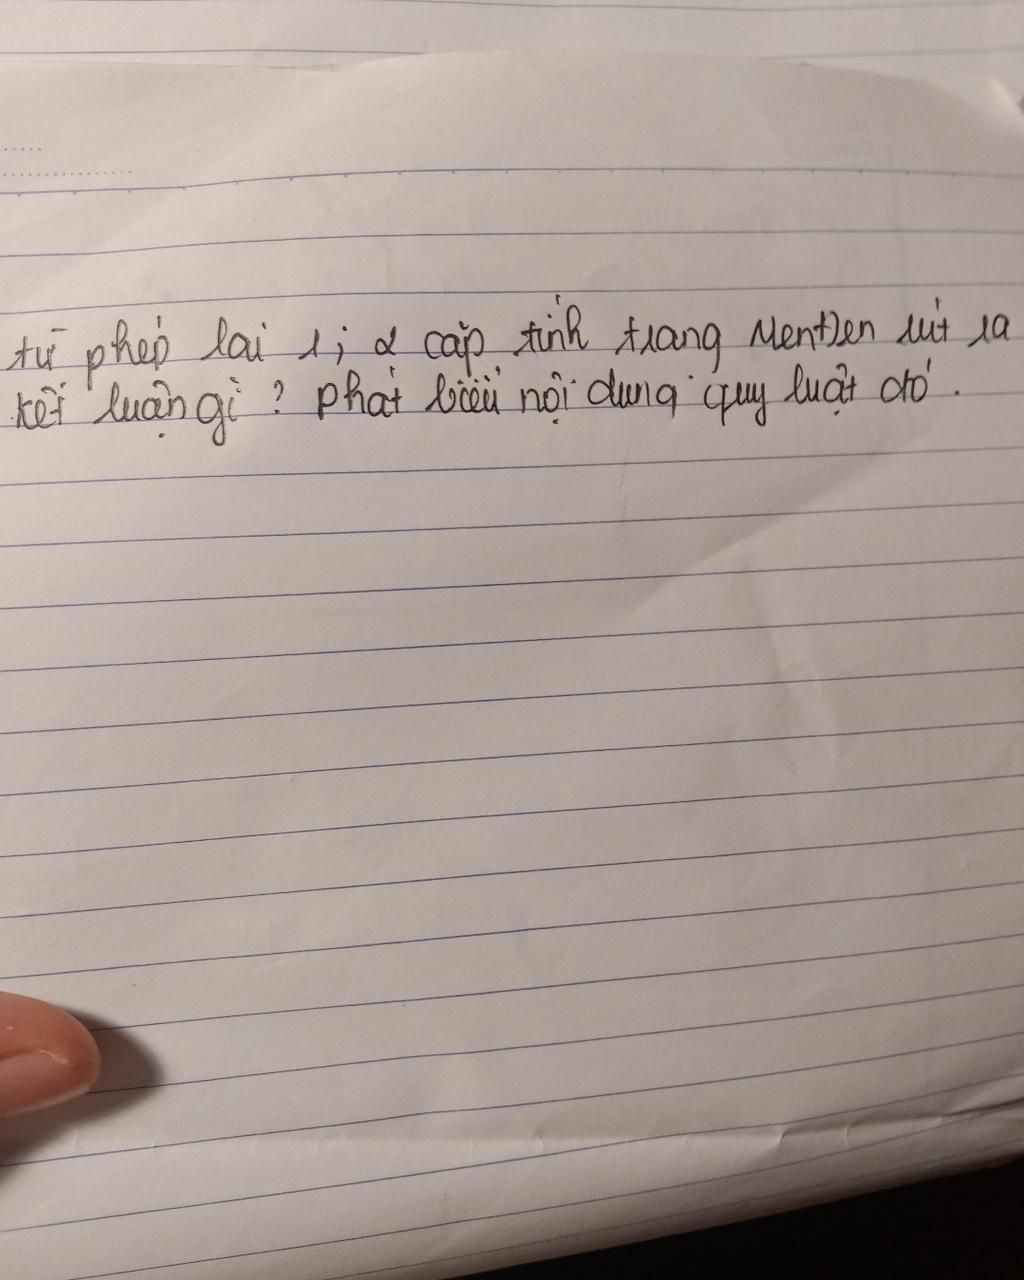 từ phép lai 1; 2 cặp tính trạng MenĐen rút ra
kết luận gì ? phát biểu nội dung quy luật đó .